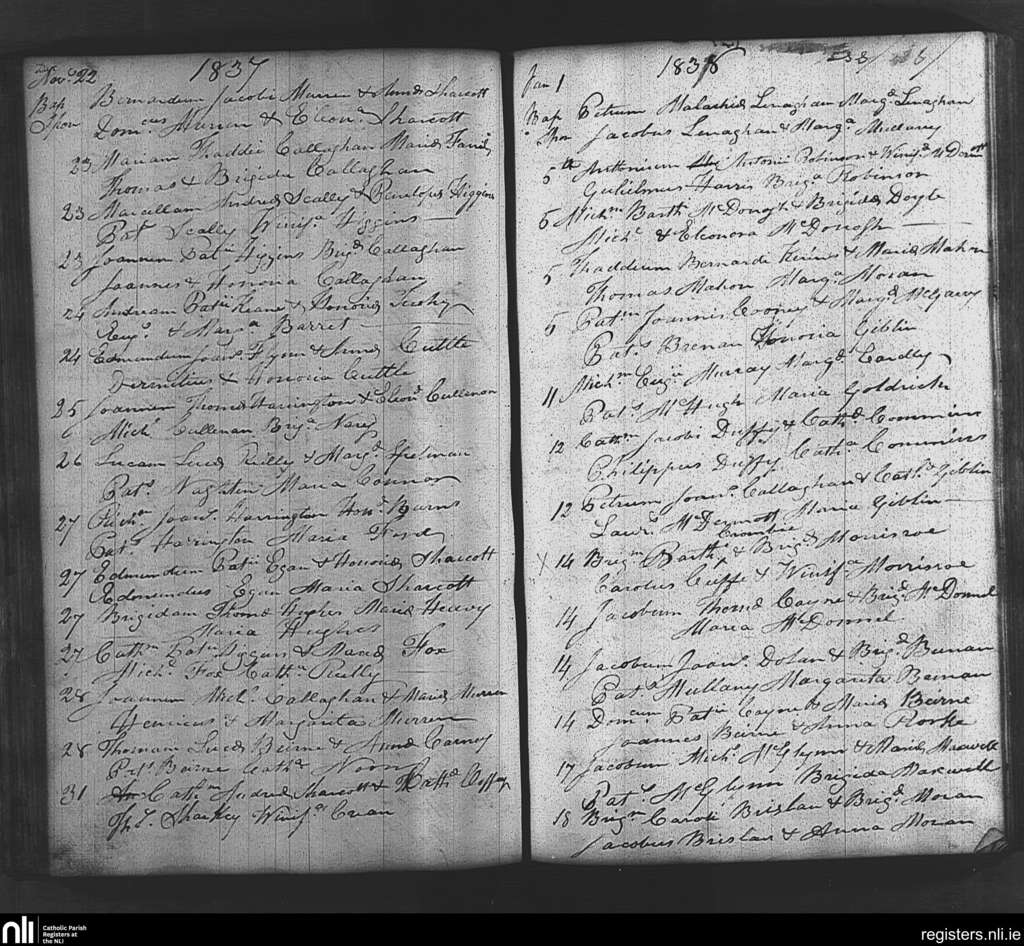 Nov. 22
1837
Bap Bernardum Jacobi Murren & Anna Sharcott
Spon Dom.cus Murren & Eleon.a Sharcott
23 Mariam Thaddei Callaghan Maria
Thomas & Brigida Callaghan
23 Andrea Scally & Penelope Higgins
Pat.s Scally Winif.a Higgins
23 Joannem Pat.ii Higgins Brig.a Callaghan
Joannes & Honoria Callaghan
24 Andream Pat.ii Keane & Honoria
& Marg.a Barret
24 Edmundum Joan.s Flynn & Anna Cuttle
& Honoria Cuttle
25 Joannem Thoma Harrington & Eleon.a Cullenan
Mich.l Cullenan Brig.a Nary
26 Lucam Luca Reilly & Marg.a
Pat.s Naghten Maria Connor
27 Joan.s Harrington Hon.a Burns
Pat.s Harrington Maria
27 Edmundum Pat.ii Egan & Honoria Sharcott
Edmundus Egan Maria Sharcott
27 Brigidam Thoma Hughes Maria Heavy
Maria Hughes
27 Cath.m Pat.ii Higgins & Maria Fox
Mich.l Fox Cath.a Reilly
28 Joannem Mich.l Callaghan & Maria Murren
Henricus & Margarita Murren
28 Thomam Luca Beirne & Anna Carney
Pat.s Beirne Cath.a
31 Cath.m Andrea Sharcott & Cath.a
Th.s Sharkey Winif.a
Jan 1
1838
Bap Petrum Malachia Lenaghan Marg.a Lenaghan
Spon Jacobus Lenaghan & Marg.a Mullany
5th Antonium Antonii Robinson & Winif.a McDermott
Gulielmus Harris Brig.a Robinson
5 Mich.m Barth. McDonogh & Brigida Doyle
Mich.l & Eleonora McDonogh
5 Thaddeum Bernardi & Maria Mahon
Thomas Mahon Marg.a Moran
6 Pat.m Joannis Cooney & Marg.a McGarry
Pat.s Brenan Honoria Giblin
11 Mich.m Eug.ii Murray Marg.a Cardly
Pat.s McHugh Maria Goldrick
12 Cath.m Jacobi Duffy & Cath.a Commins
Philippus Duffy Cath.a Commins
12 Petrum Joan.s Callaghan & Cath.a Giblin
Law.s McDermott Maria Giblin
X 14 Brig.m Barth. & Brig.a Morrisroe
Carolus Cuffe & Winif.a Morrisroe
14 Jacobum Thoma Coyne & Brig.a McDonnel
Maria McDonnel
14 Jacobum Joan.s Dolan & Brig.a Beirnan
Pat.s Mullany Margarita Beirnan
14 Dom.cum Pat.ii Coyne & Maria Beirne
Joannes Beirne & Anna Rorke
17 Jacobum Mich.l McGlynn & Maria Maxwell
Pat.s McGlynn Brigida Maxwell
18 Brig.m Caroli Brislan & Brig.a Moran
Jacobus Brislan & Anna Moran
nli
Catholic Parish
Registers at
the NLI
registers.nli.ie